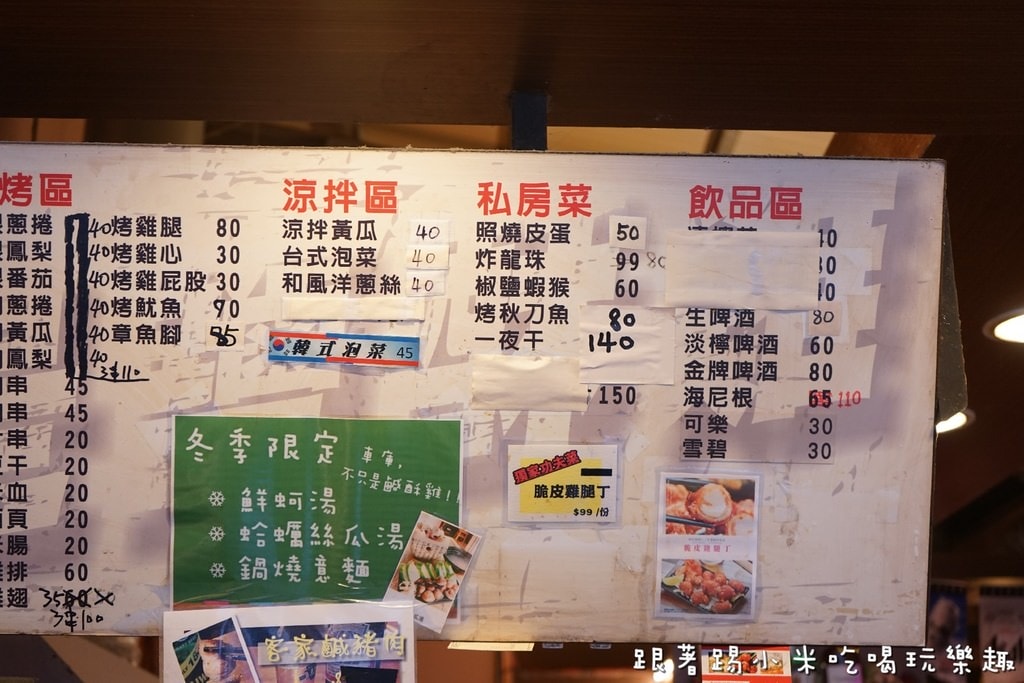 烤區
蔥捲
鳳梨
番茄
蔥捲
黃瓜
鳳梨
40
3串110
串 45
串 45
串 20
干 20
血 20
頁 20
腸 20
排 60
翅 35
3串100
40 烤雞腿 80
40 烤雞心 30
40 烤雞屁股 30
40 烤魷魚 90
40 章魚腳 85
涼拌區
涼拌黃瓜 40
台式泡菜 40
和風洋蔥絲 40
韓式泡菜 45
私房菜
照燒皮蛋 50
炸龍珠 99
椒鹽蝦猴 60
烤秋刀魚 80
一夜干 140
150
飲品區
40
80
40
生啤酒 80
淡檸啤酒 60
金牌啤酒 80
海尼根 65 110
可樂 30
雪碧 30
冬季限定
車庫,
不只是鹹酥雞!
鮮蚵湯
蛤蠣絲瓜湯
鍋燒意麵
獨家功夫菜
脆皮雞腿丁
$99/份
脆皮雞腿丁
客家鹹豬肉
跟著踢小米吃喝玩樂趣